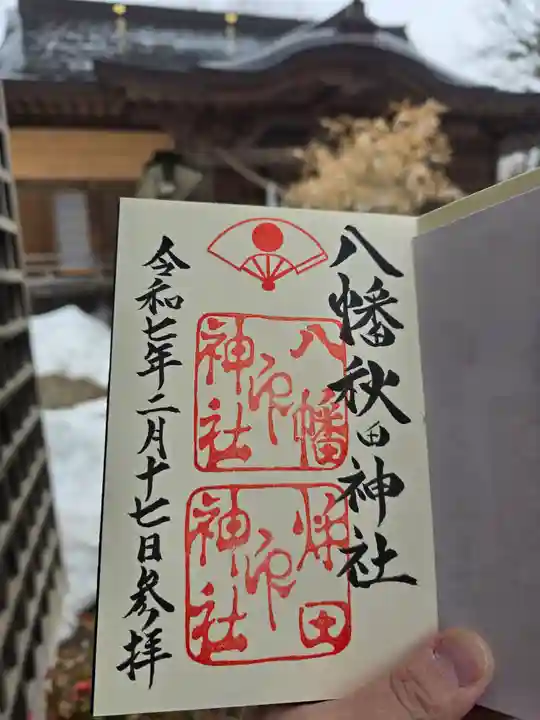 八幡秋田神社
八幡
神社
印
秌田
神社
印
令和七年二月十七日参拝